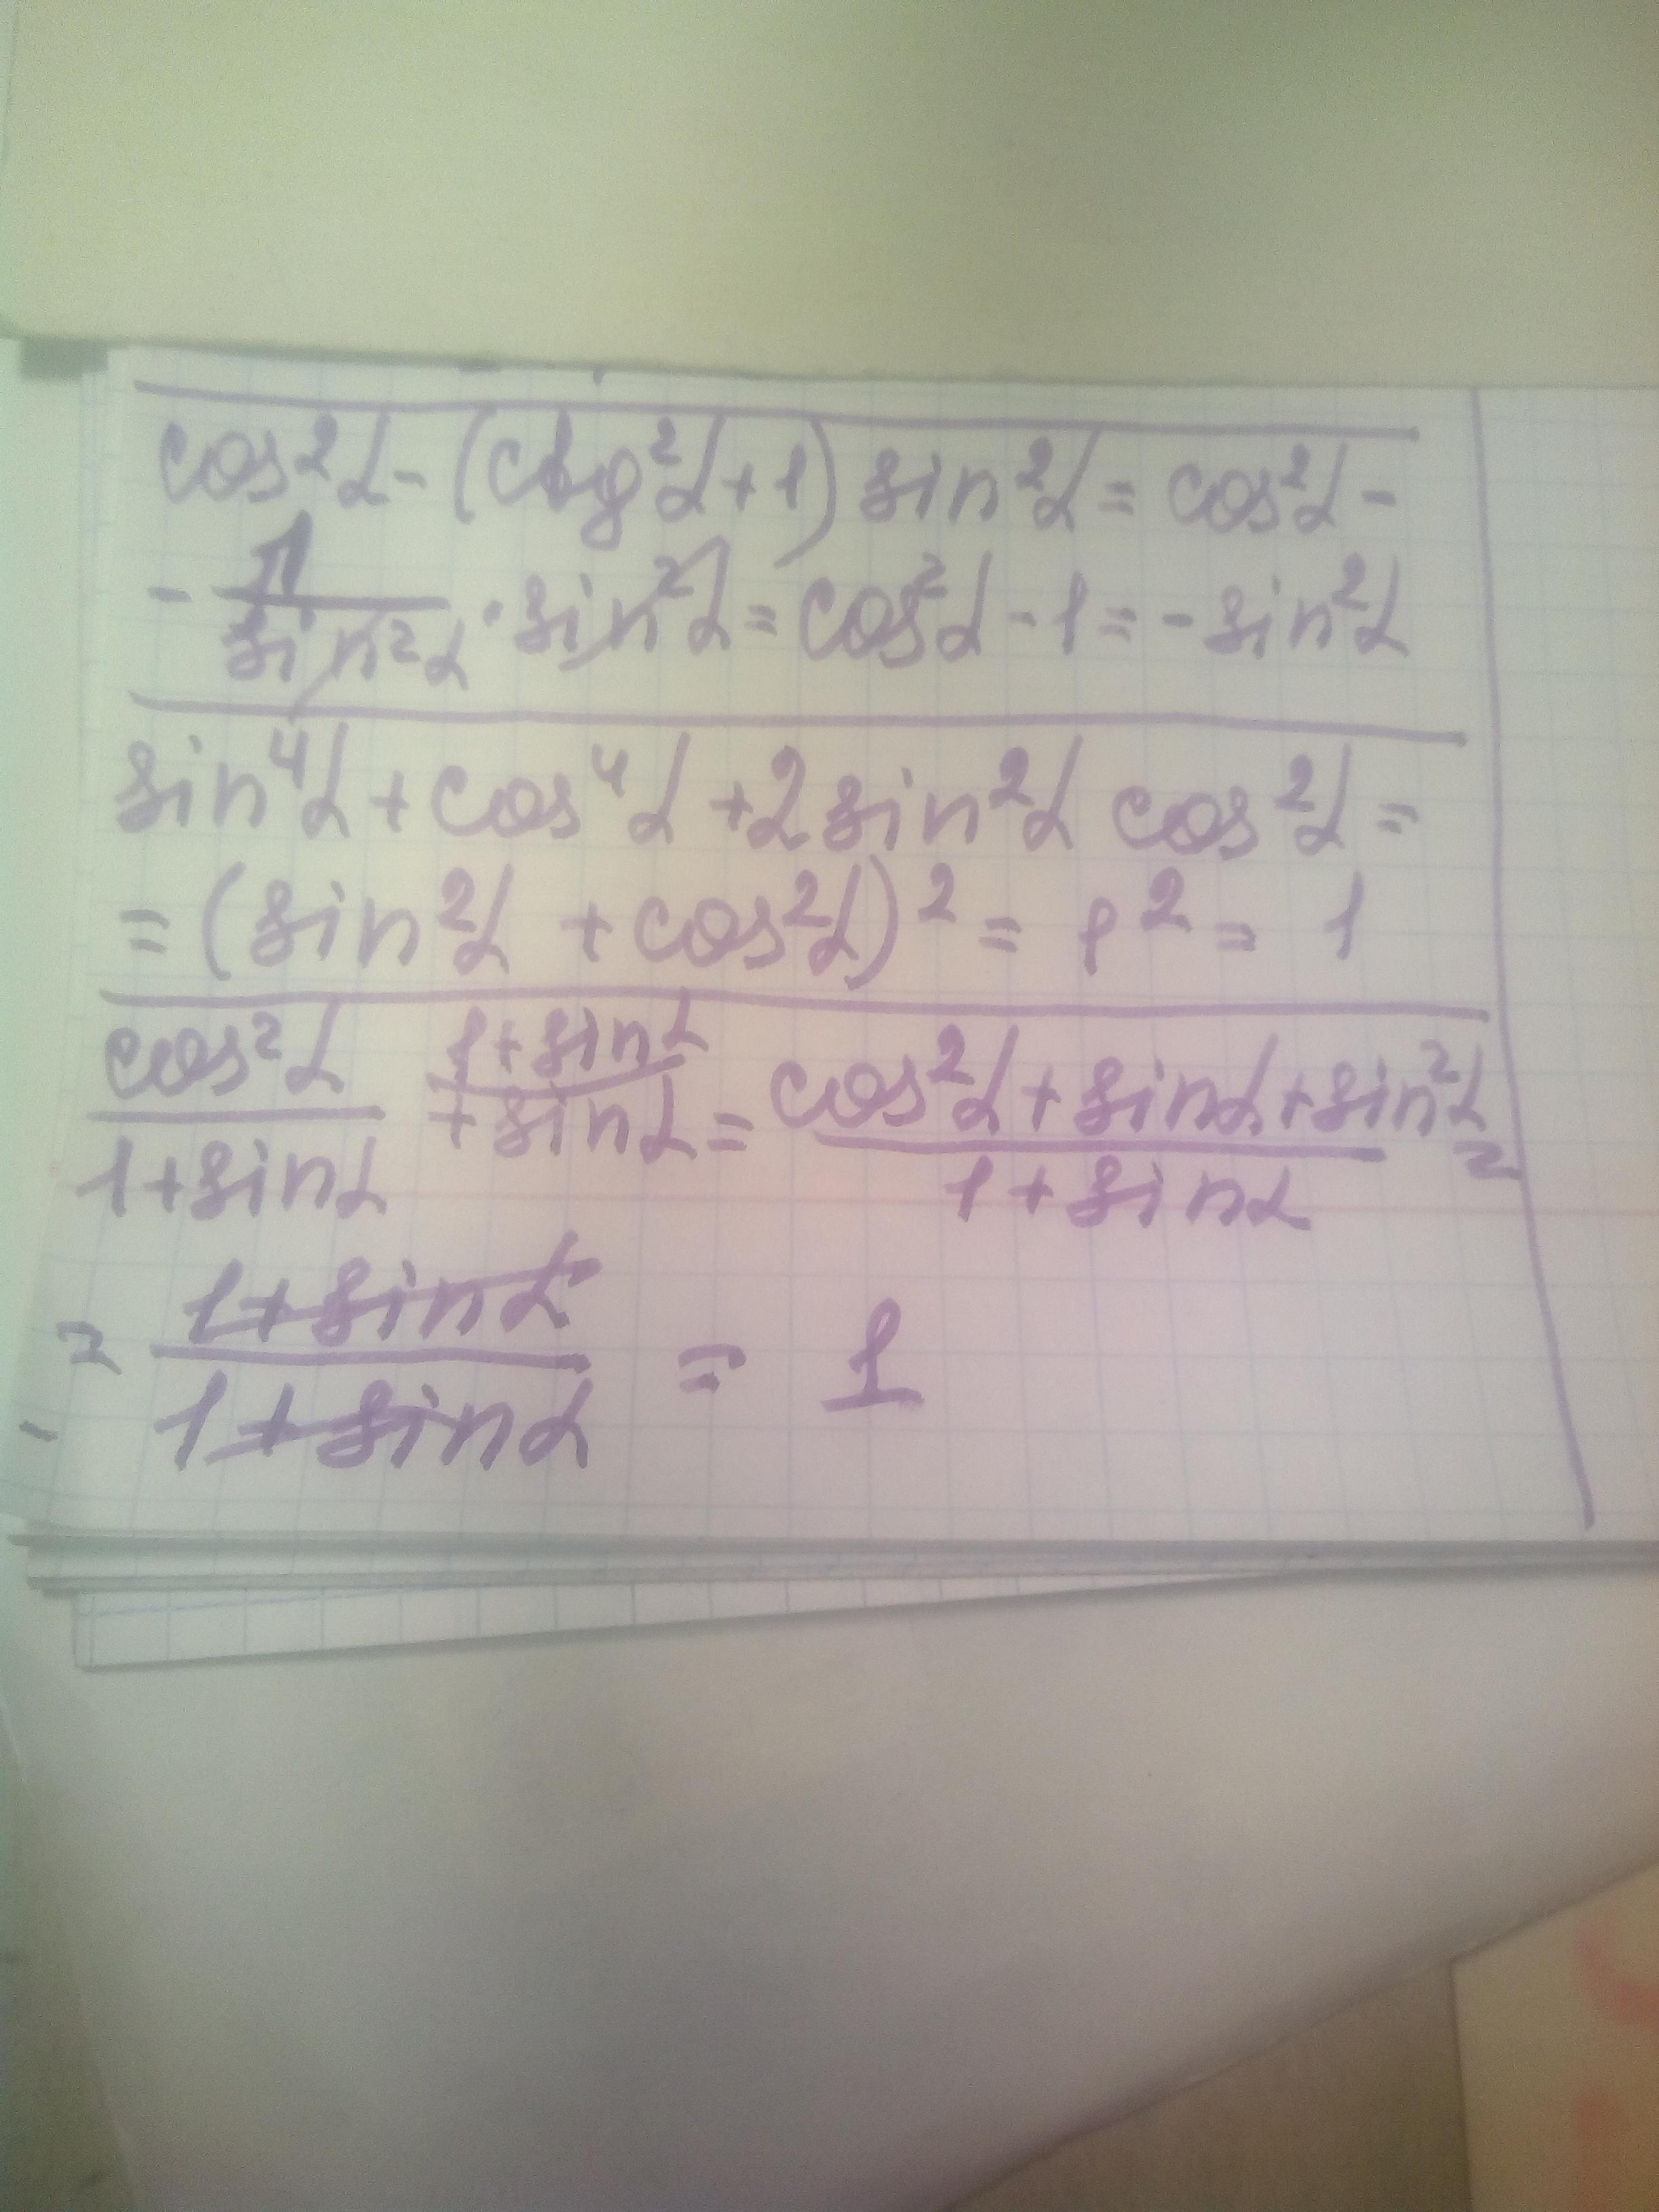 cos²α - (ctg²α + 1) sin²α = cos²α -
- 1/sin²α · sin²α = cos²α - 1 = - sin²α
sin⁴α + cos⁴α + 2 sin²α cos²α =
= (sin²α + cos²α)² = 1² = 1
cos²α/1+sinα + sinα 1+sinα = cos²α + sinα + sin²α/1 + sinα =
= 1 + sinα/1 + sinα = 1